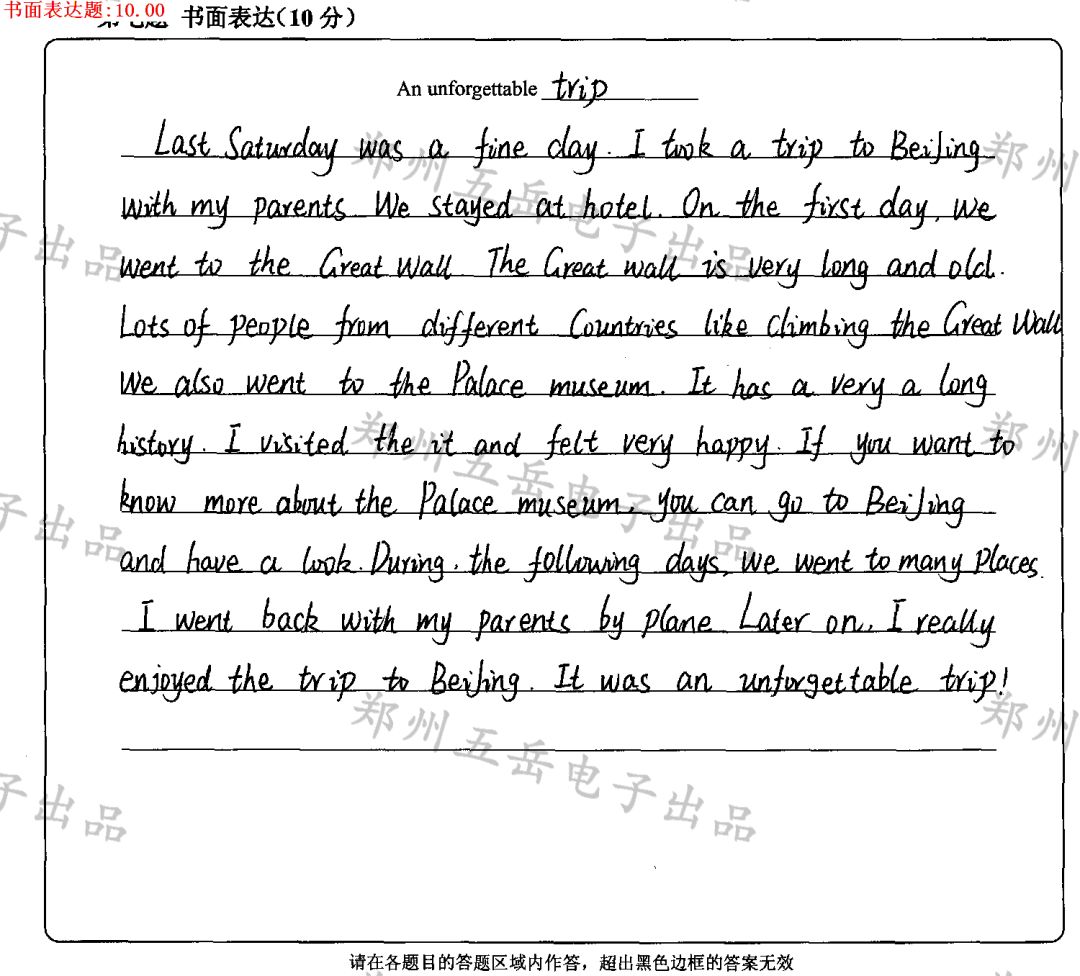 书面表达题:10.00
书面表达(10分)
An unforgettable trip
Last Saturday was a fine day. I took a trip to BeiJing
with my parents. We stayed at hotel. On the first day, we
went to the Great Wall. The Great wall is very long and old.
Lots of people from different Countries like climbing the Great Wall
We also went to the Palace museum. It has a very a long
history. I visited the it and felt very happy. If you want to
know more about the Palace museum, you can go to BeiJing
and have a look. During. the following days, we went to many places.
I went back with my parents by plane Later on. I really
enjoyed the trip to BeiJing. It was an unforgettable trip!
请在各题目的答题区域内作答，超出黑色边框的答案无效
郑州五岳电子出品